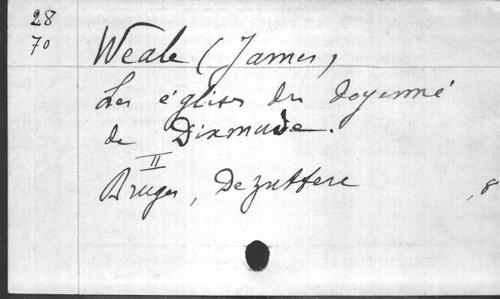 28
70
Weale (James)
Les églises du doyenné
de Dixmude.
II
Bruges, Dezuttere
,8